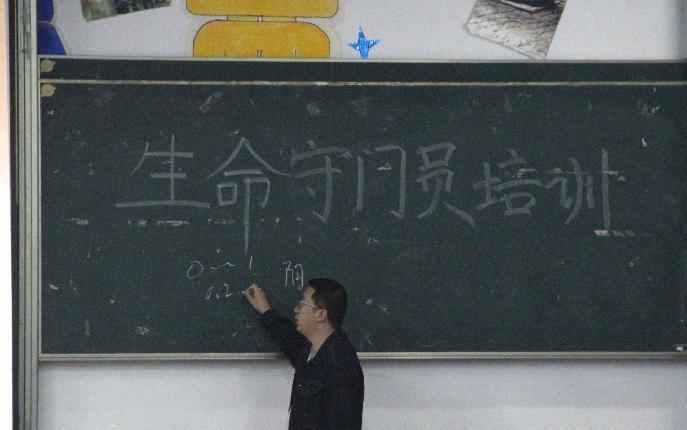 生命守门员培训
0~1 阴
0.2